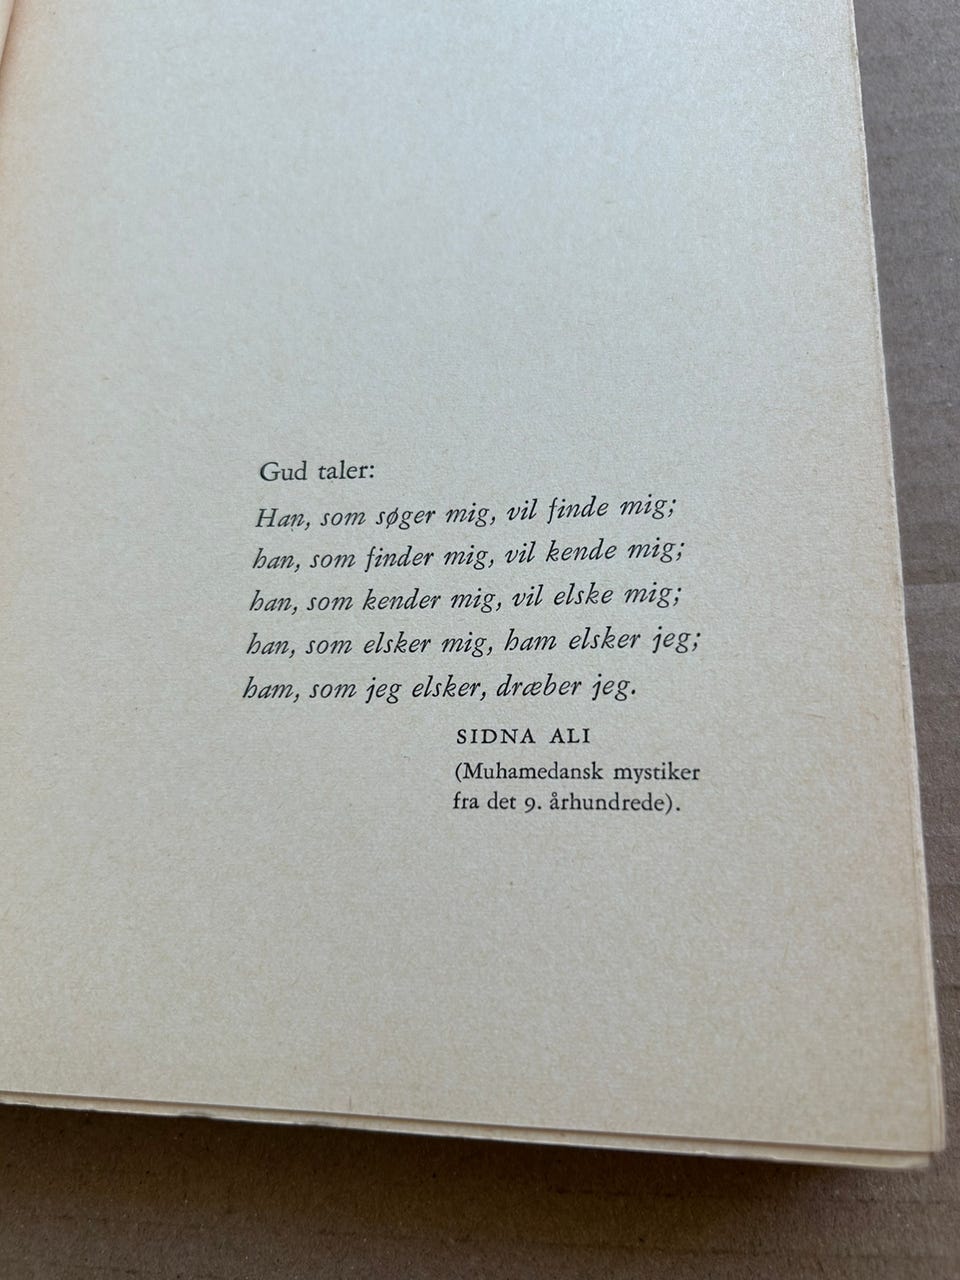 Gud taler:
Han, som søger mig, vil finde mig;
han, som finder mig, vil kende mig;
han, som kender mig, vil elske mig;
han, som elsker mig, ham elsker jeg;
ham, som jeg elsker, dræber jeg.
SIDNA ALI
(Muhamedansk mystiker
fra det 9. århundrede).